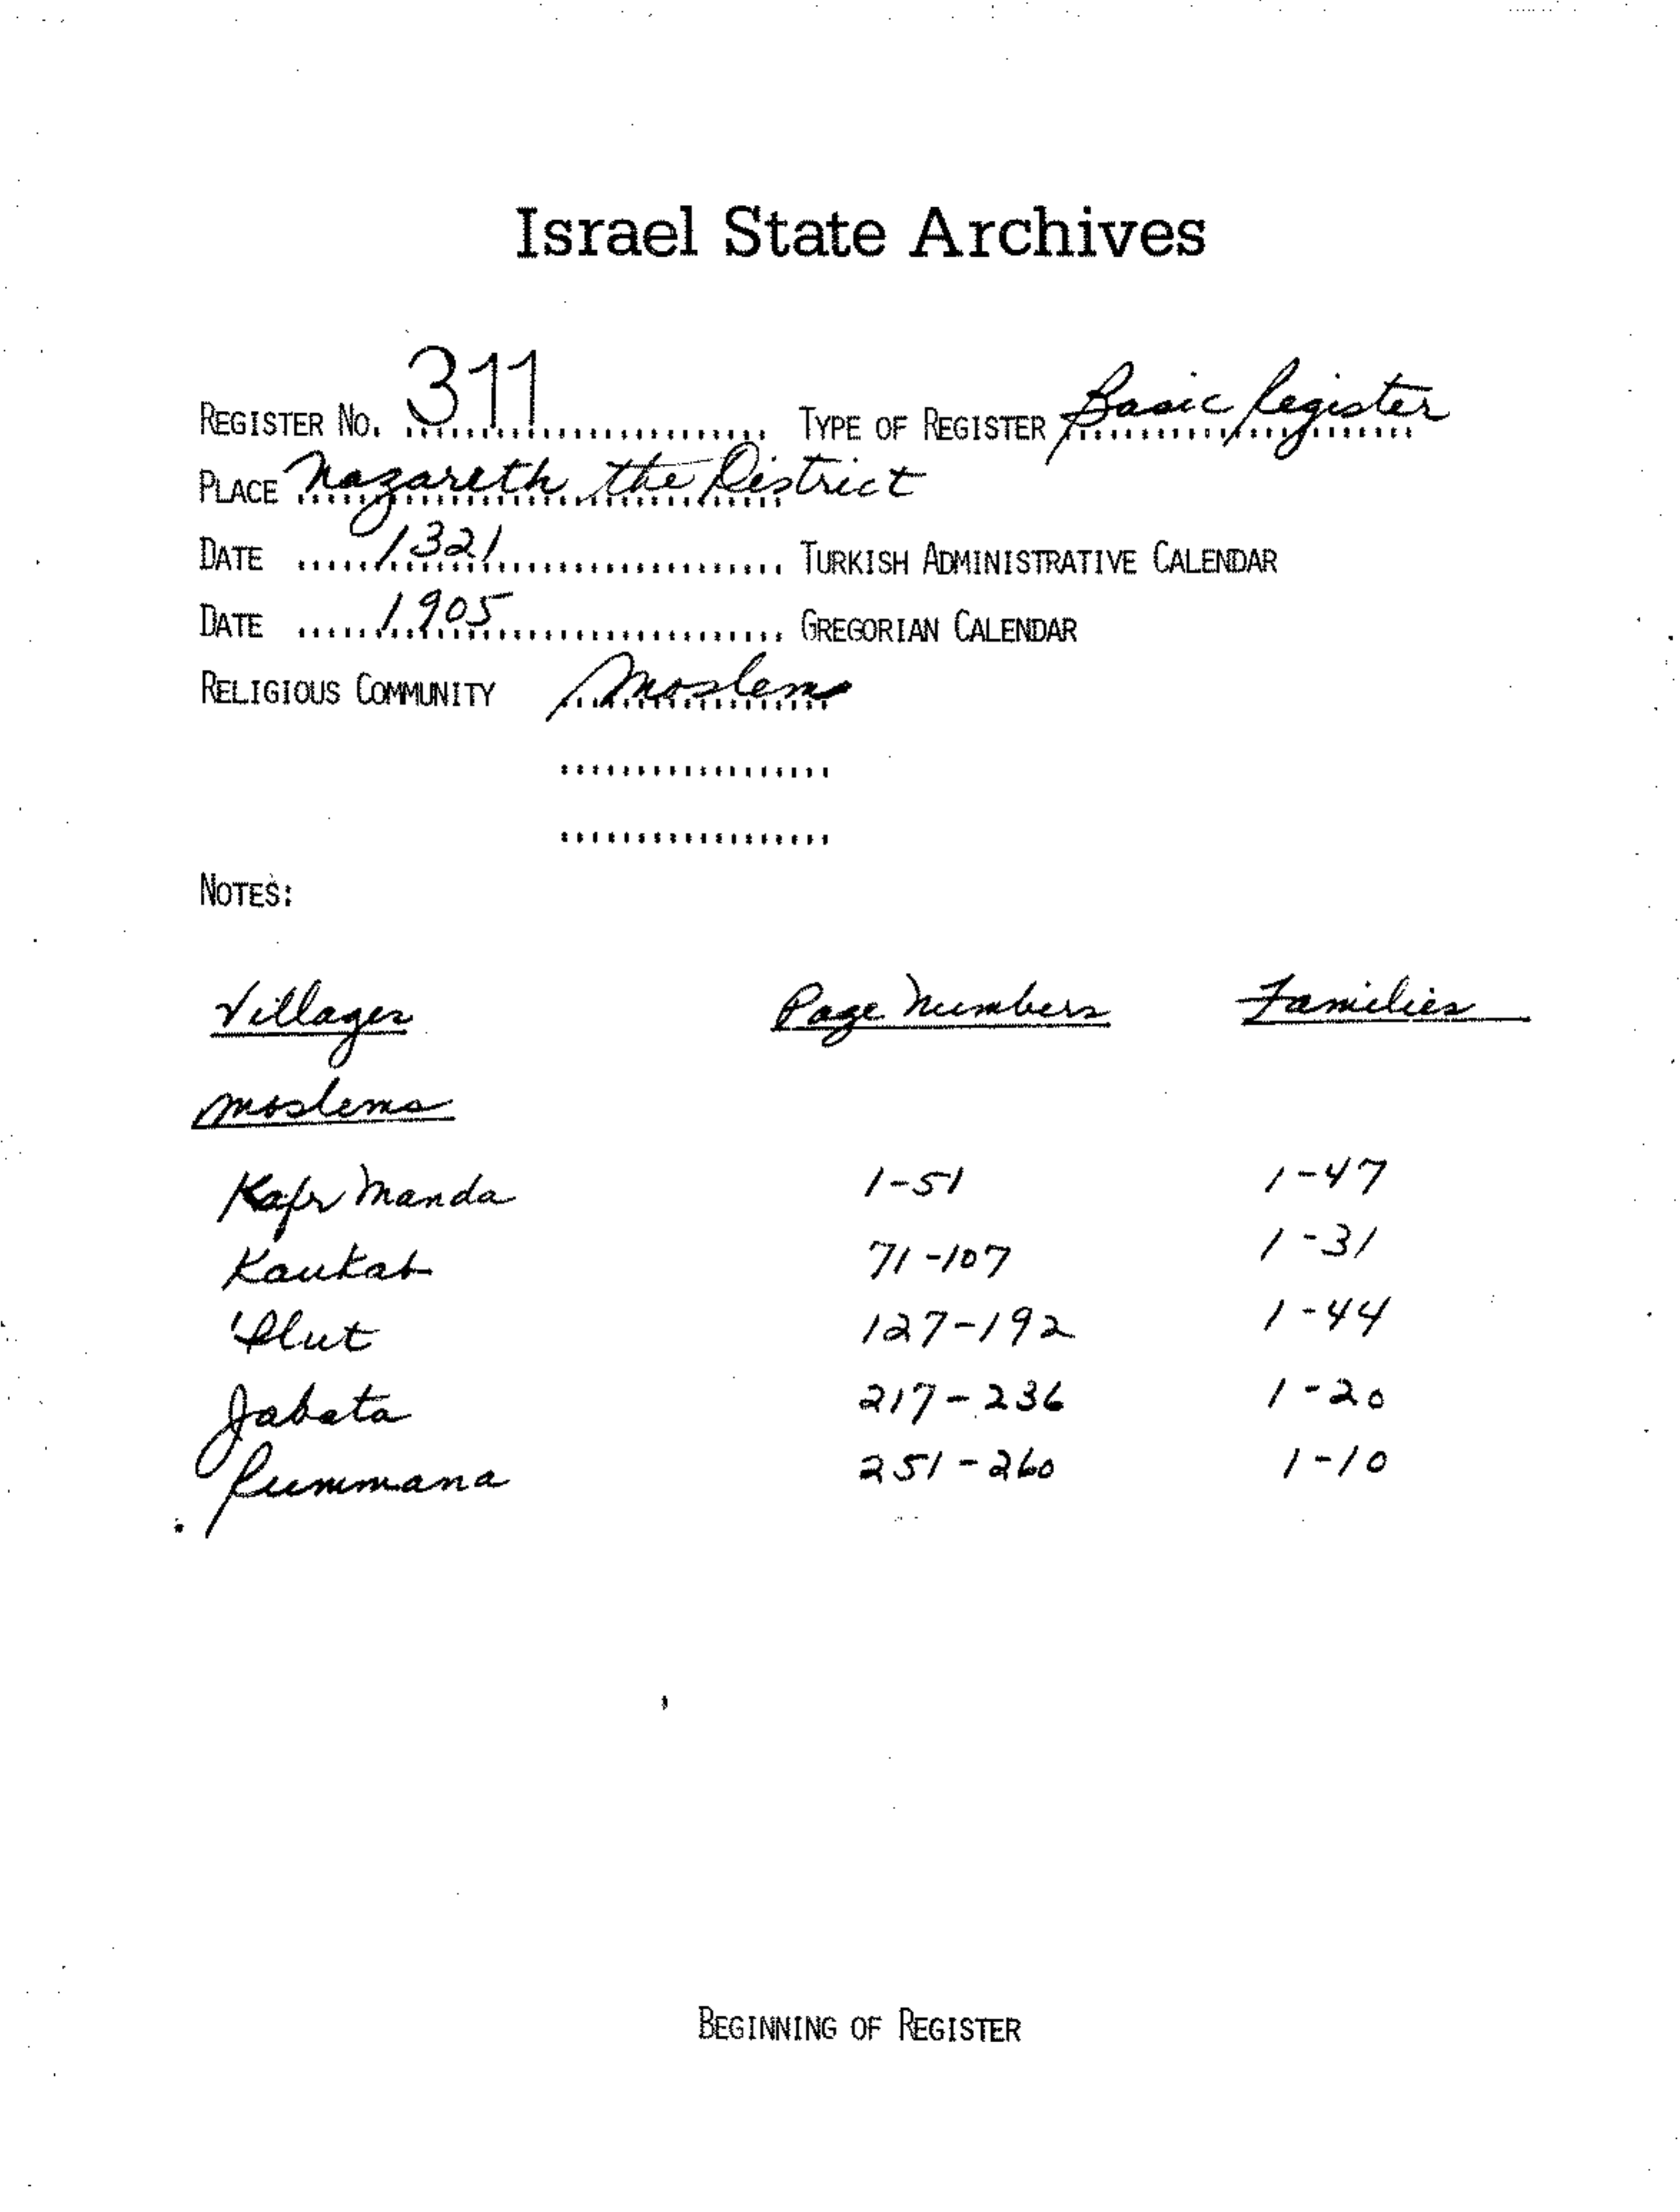 Israel State Archives
REGISTER NO. 311 TYPE OF REGISTER Basic Register
PLACE Nazareth the District
DATE 1321 TURKISH ADMINISTRATIVE CALENDAR
DATE 1905 GREGORIAN CALENDAR
RELIGIOUS COMMUNITY Moslems
NOTES:
Villages Page Numbers Families
Moslems
Kafr Manda 1-51 1-47
Kaukab 71-107 1-31
'Ilut 127-192 1-44
Jabata 217-236 1-20
Rummana 251-260 1-10
BEGINNING OF REGISTER